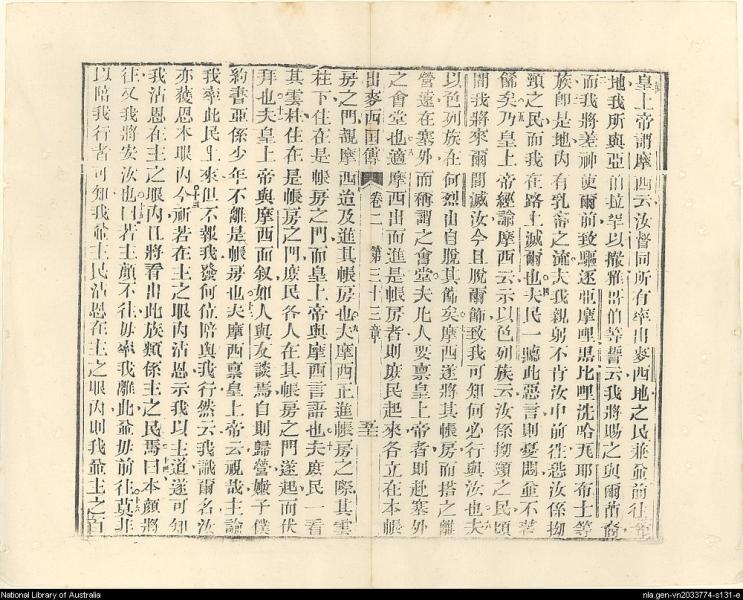 皇上帝謂摩西云汝督同所有率出麥西地之民爾並前往
地我所與亞伯拉罕以撒雅哥伯等誓云我將賜之與爾苗裔
而我將差神使爾前致驅逐亞摩哩黑比哩洗哈瓦耶布士等
族即是地內有乳蜜之流夫我親躬不肯汝中前往恐汝係拗
頸之民而我在路上滅爾也夫民一聽此惡言則憂悶並不著
飾矣乃皇上帝經諭摩西云示以色列族云汝係拗頸之民頃
間我將來爾間滅汝今且脫爾飾致我可知何必行與汝也夫
以色列族在何烈山自脫其飾矣摩西遂將其帳房而搭之離
營遠在塞外而稱謂之會堂夫凡人要稟皇上帝者則赴塞外
之會堂也適摩西出而進是帳房者則庶民起來各立在本帳
出麥西國傳 卷二 第三十三章
房之門覩摩西造及進其帳房也夫摩西正進帳房之際其雲
柱下住在是帳房之門而皇上帝與摩西言語也夫庶民一看
其雲柱住在是帳房之門庶民各人在其帳房之門遂起而伏
拜也夫皇上帝與摩西而叙如人與友談焉自則歸營嫩子僕
約書亞係少年不離是帳房也夫摩西稟皇上帝云視哉主諭
我率此民上來但不報我發何位陪與我行然云我識爾名汝
亦獲恩本眼內今祈若在主之眼內沾恩示我以主道遂可知
我沾恩在主之眼內且將看出此族類係主之民焉曰本顏將
往又我將安汝也曰若主顏不往毋率我離此並毋前往莫非
以陪我行者可知我並主民沾恩在主之眼內則我並主之百
National Library of Australia
nla.gen-vn2033774-s131-e